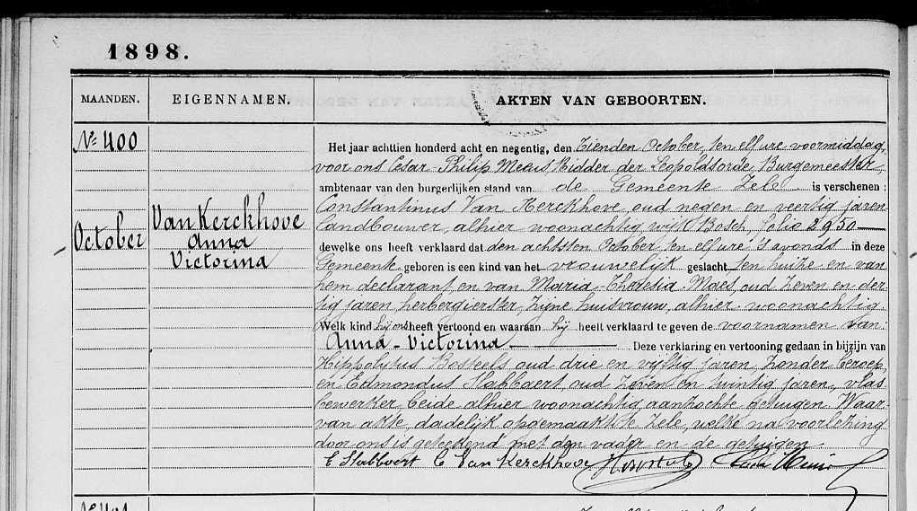 1898.
MAANDEN. EIGENNAMEN. AKTEN VAN GEBOORTEN.
Nr 400
October
Van Kerckhove
Anna
Victorina
Het jaar achttien honderd acht en negentig, den Tienden October, ten elf ure voormiddag,
voor ons Cesar Philip Meeus Ridder der Leopoldsorde, Burgemeester
ambtenaar van den burgerlijken stand van de Gemeente Zele is verschenen :
Constantinus Van Kerckhove, oud negen en veertig jaren
landbouwer, alhier woonachtig wijk Bosch, folio 2950
dewelke ons heeft verklaard dat den achtsten October ten elf ure 's avonds in deze
Gemeente geboren is een kind van het vrouwelijk geslacht, ten huize en van
hem declarant, en van Maria-Theresia Maes, oud zeven en der
tig jaren, herbergierster, zijne huisvrouw, alhier woonachtig
Welk kind hij ons heeft vertoond en waaraan hij heeft verklaard te geven de voornamen van:
Anna-Victorina. Deze verklaring en vertooning gedaan in bijzijn van
Hippolytus Bosteels oud drie en vijftig jaren, zonder beroep,
en Edmondus Slabbaert, oud zeven en twintig jaren, vlas
bewerker, beide alhier woonachtig, aanzochte getuigen. Waar-
van akte, dadelijk opgemaakt te Zele, welke na voorlezing
door ons is geteekend met den vader en de getuigen.
E Slabbaert C Van Kerckhove